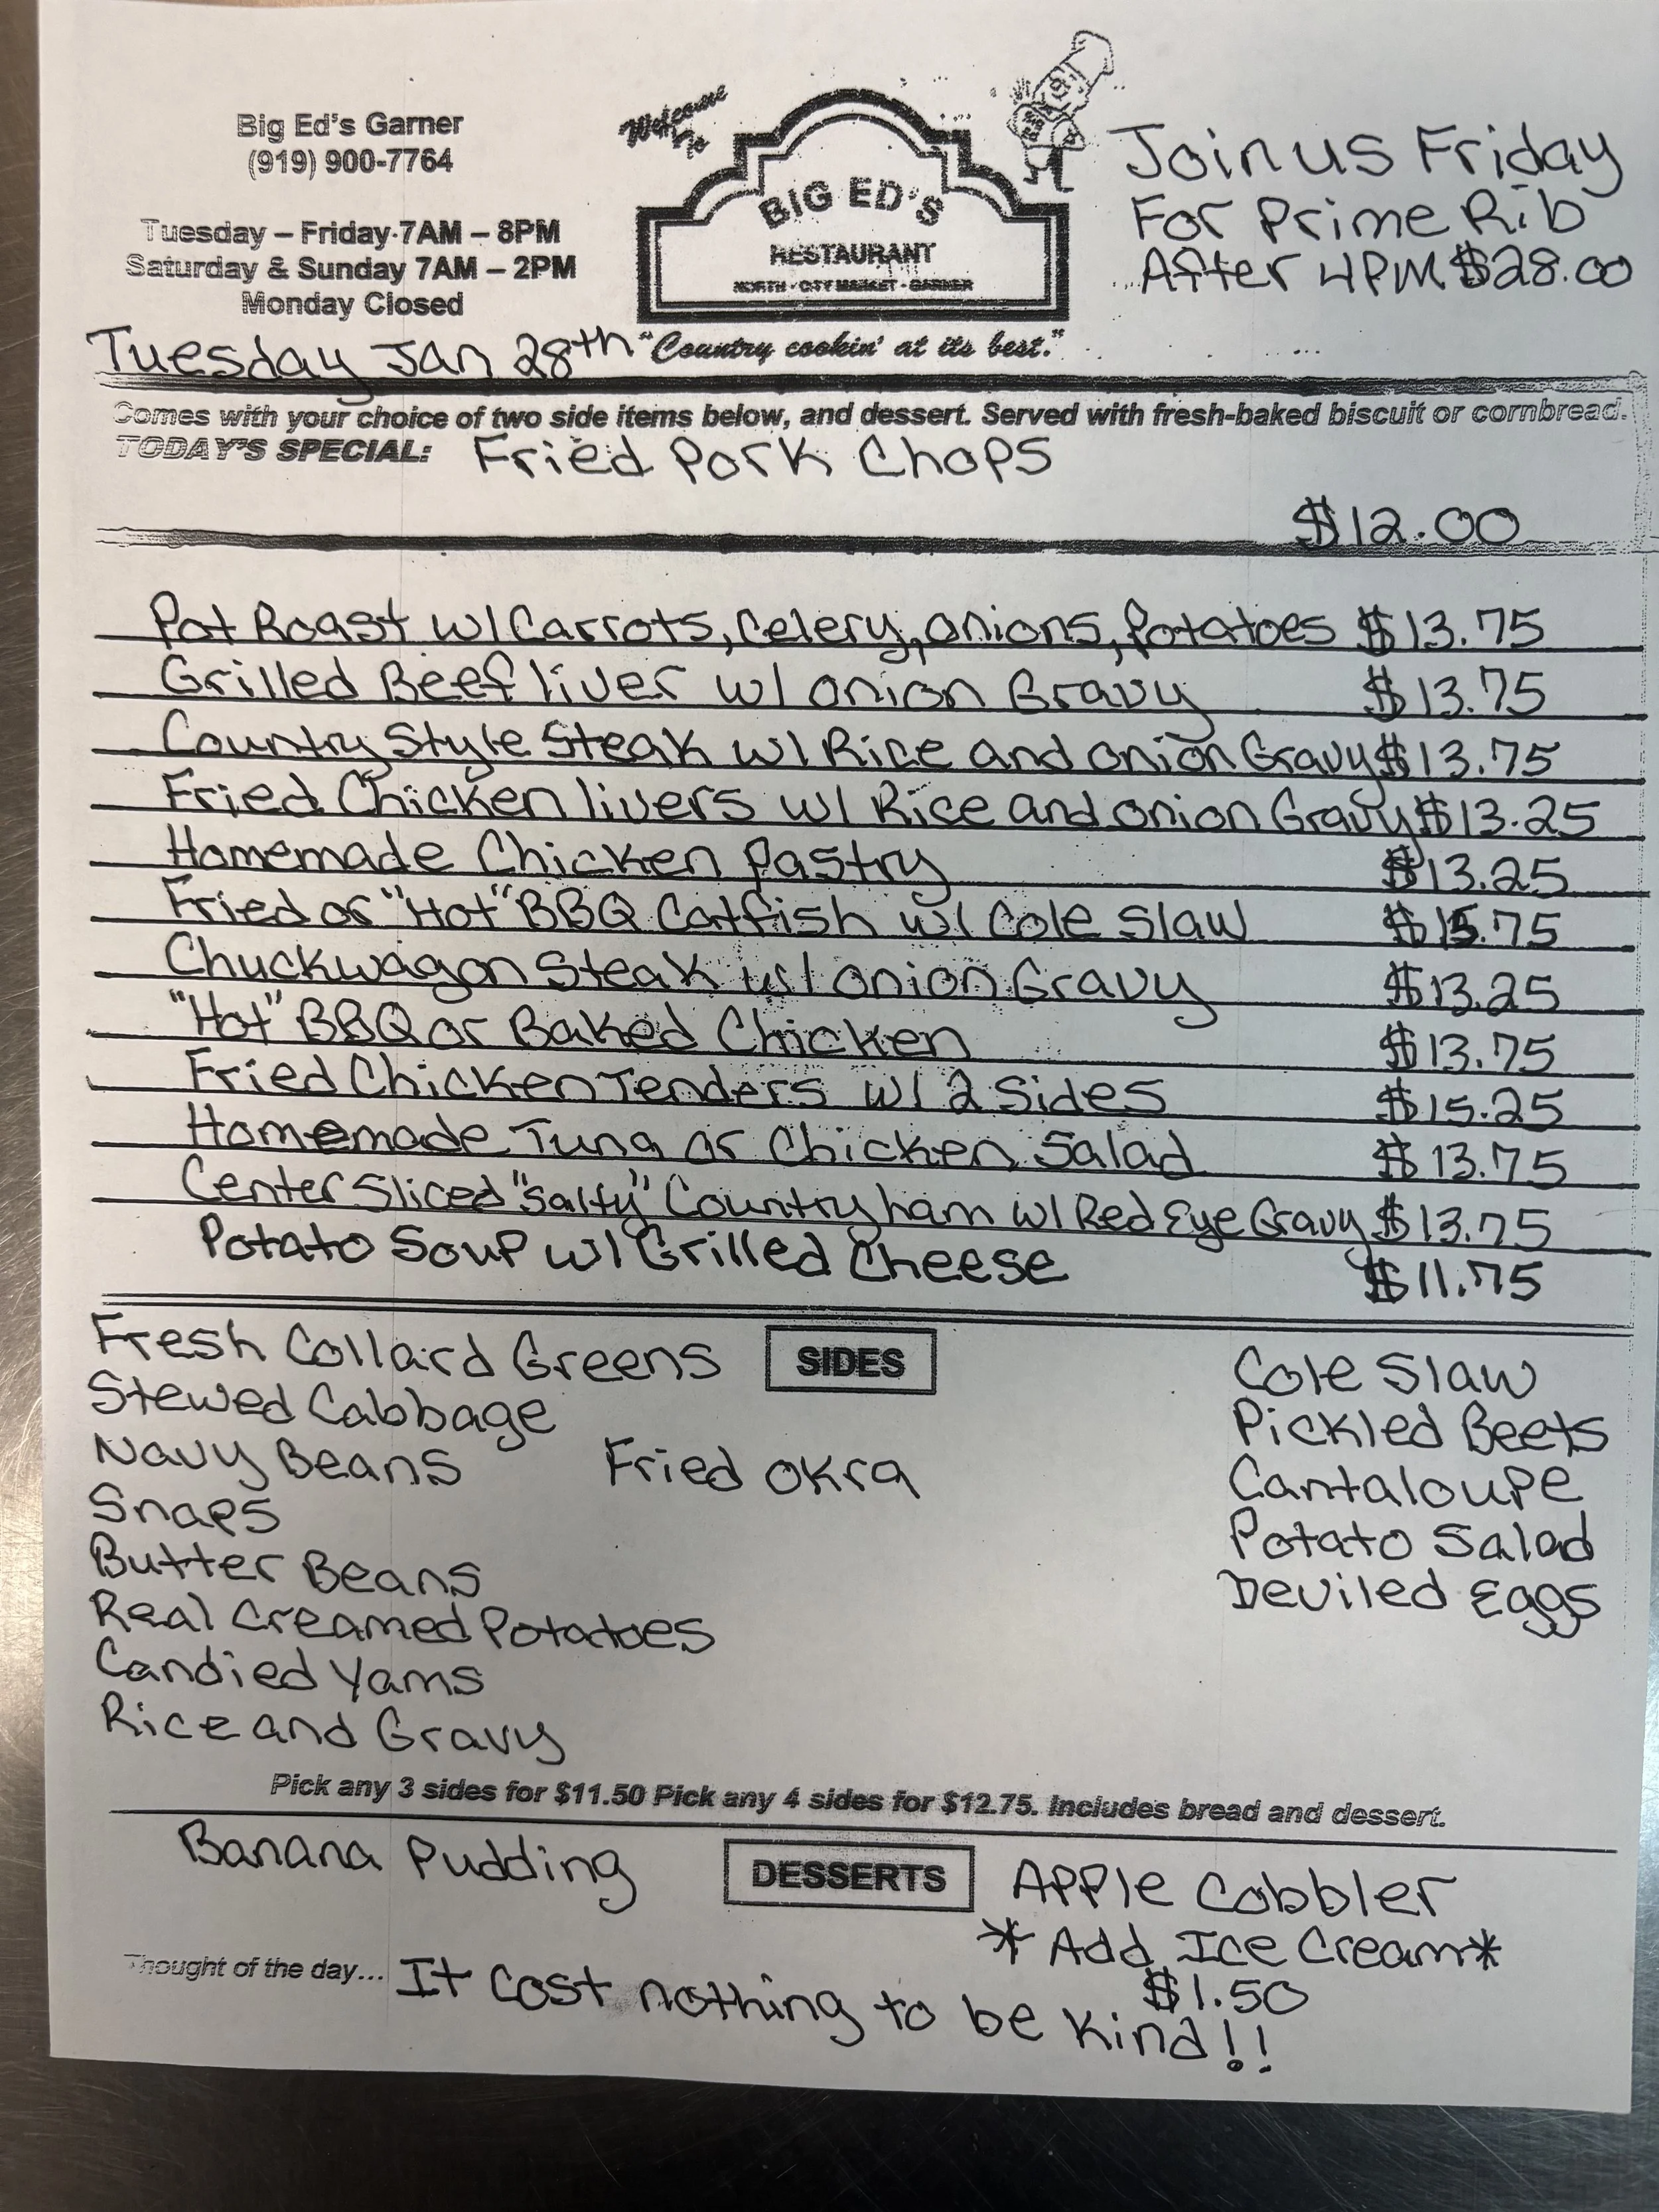 Big Ed's Garner
(919) 900-7764
Tuesday – Friday 7AM – 8PM
Saturday & Sunday 7AM – 2PM
Monday Closed
Welcome
To
BIG ED'S
RESTAURANT
NORTH - CITY MARKET - GARNER
"Country cookin' at its best."
Join us Friday
For Prime Rib
After 4PM $28.00
Tuesday Jan 28th
Comes with your choice of two side items below, and dessert. Served with fresh-baked biscuit or cornbread.
TODAY'S SPECIAL: Fried Pork Chops
$12.00
Pot Roast w/ Carrots, Celery, onions, Potatoes $13.75
Grilled Beef liver w/ onion Gravy $13.75
Country Style Steak w/ Rice and onion Gravy $13.75
Fried Chicken livers w/ Rice and onion Gravy $13.25
Homemade Chicken Pastry $13.25
Fried or "Hot" BBQ Catfish w/ Cole Slaw $15.75
Chuckwagon Steak w/ onion Gravy $13.25
"Hot" BBQ or Baked Chicken $13.75
Fried Chicken Tenders w/ 2 Sides $15.25
Homemade Tuna or Chicken Salad $13.75
Center Sliced "Salty" Country ham w/ Red Eye Gravy $13.75
Potato Soup w/ Grilled Cheese $11.75
SIDES
Fresh Collard Greens
Stewed Cabbage
Navy Beans
Snaps
Butter Beans
Real Creamed Potatoes
Candied Yams
Rice and Gravy
Fried Okra
Cole Slaw
Pickled Beets
Cantaloupe
Potato Salad
Deviled Eggs
Pick any 3 sides for $11.50 Pick any 4 sides for $12.75. Includes bread and dessert.
DESSERTS
Banana Pudding
Apple Cobbler
*Add Ice Cream*
$1.50
Thought of the day... It cost nothing to be kind!!